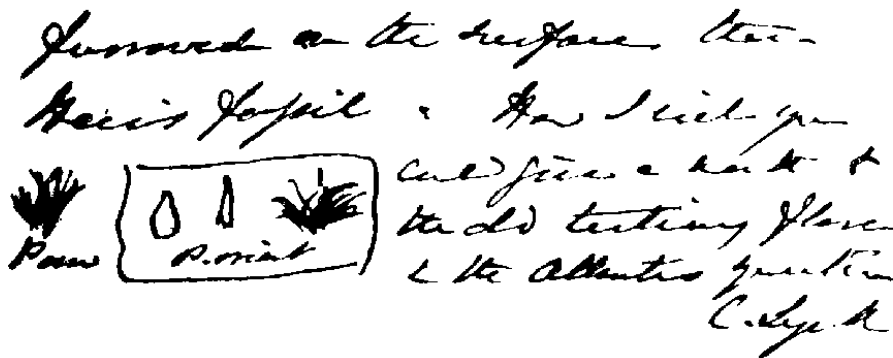 furrowed on the surface than
Heer's fossil. How I wish you
could give a month to
the old tertiary floras
& the Atlantis question
C. Lyell
P. orient